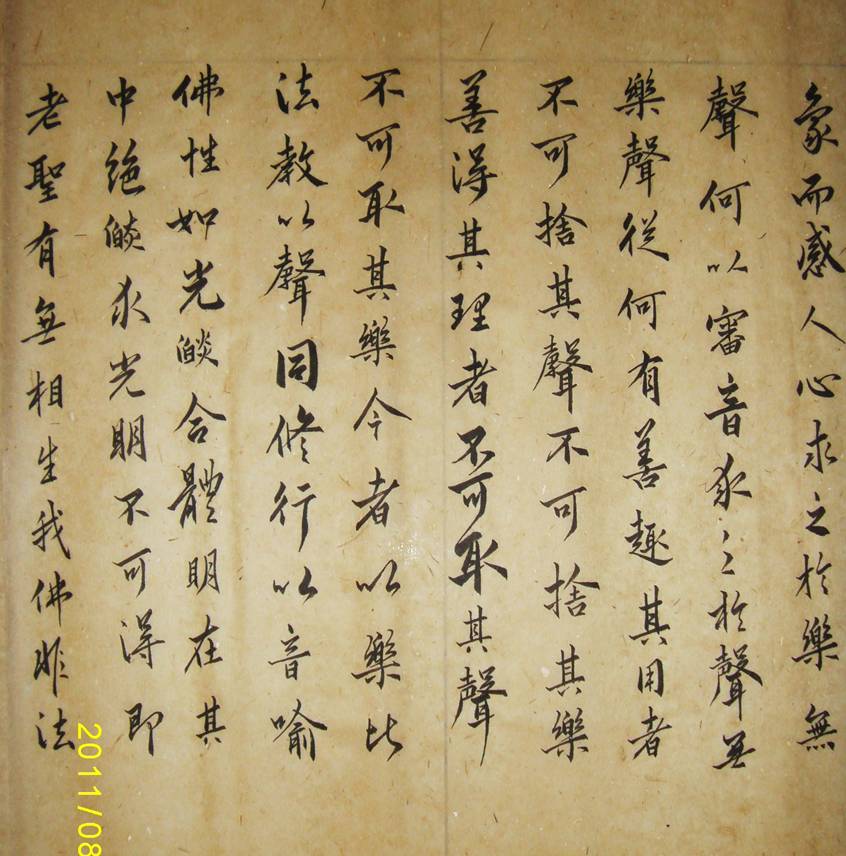 象而感人心求之於樂無
聲何以審音求之於聲無
樂聲從何有善趣其用者
不可捨其聲不可捨其樂
善得其理者不可取其聲
不可取其樂今者以樂比
法教以聲同修行以音喻
佛性如光燄合體明在其
中絕燄求光明不可得即
老聖有無相生我佛非法
2011/08